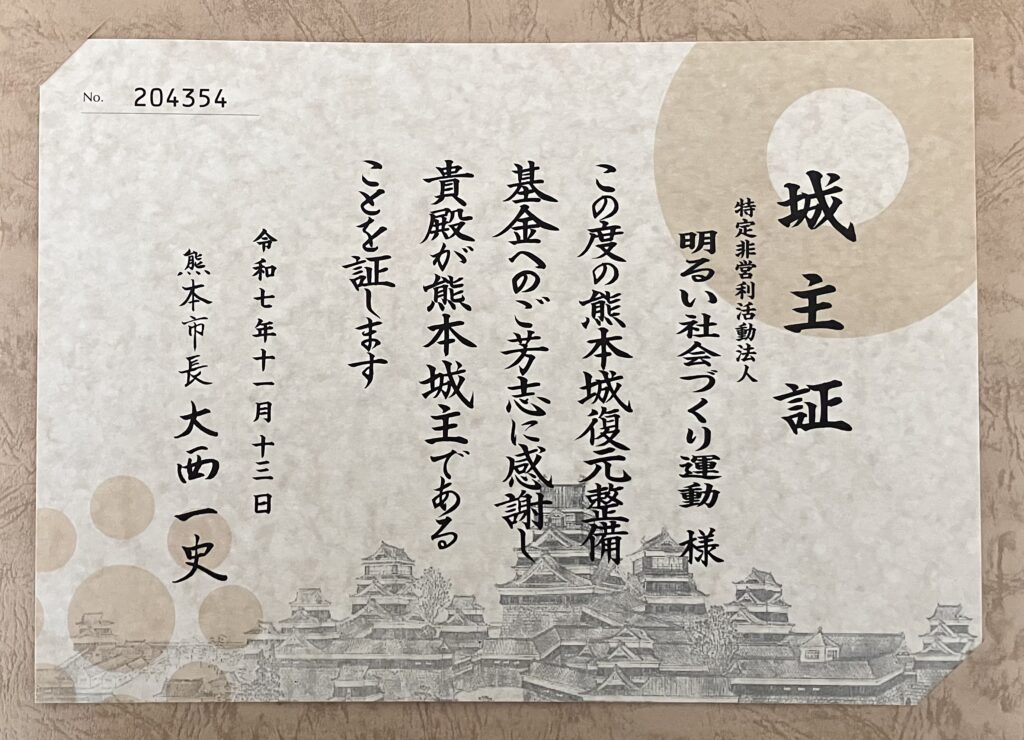 No. 204354
城主証
特定非営利活動法人
明るい社会づくり運動 様
この度の熊本城復元整備
基金へのご芳志に感謝し
貴殿が熊本城主である
ことを証します
令和七年十一月十三日
熊本市長 大西一史